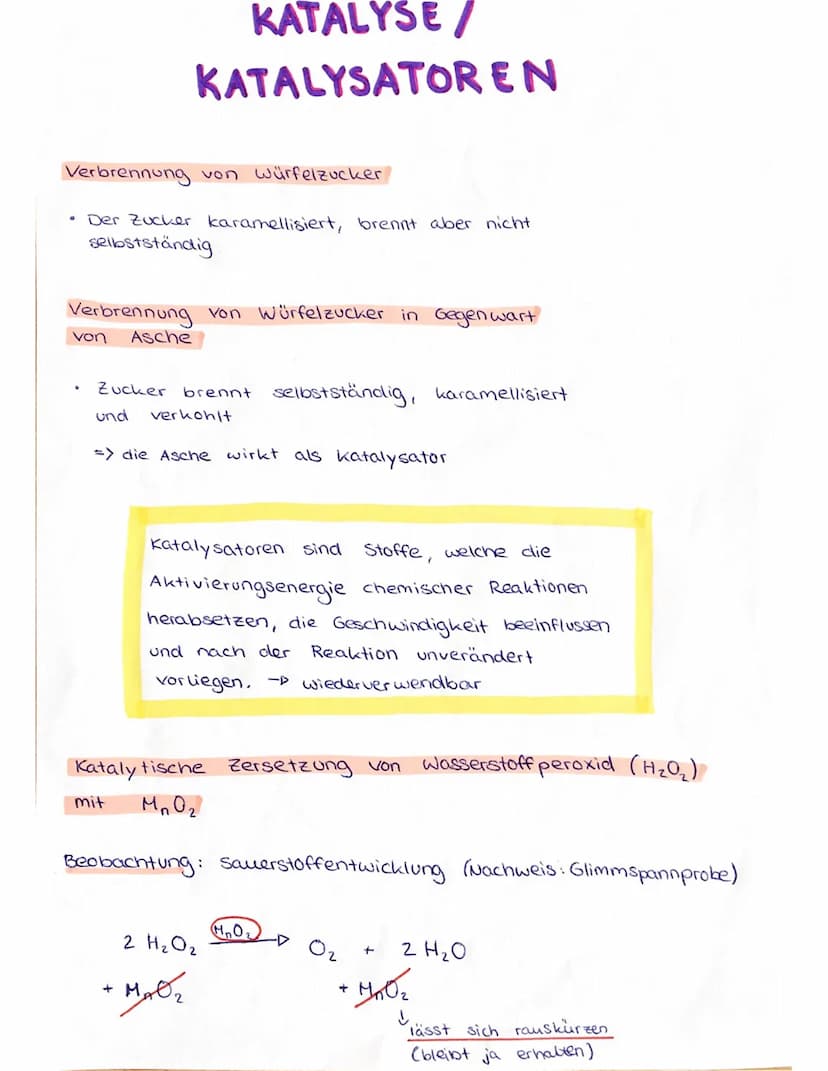 KATALYSE /
KATALYSATOREN
Verbrennung von Würfelzucker
• Der Zucker karamellisiert, brennt aber nicht
selbstständig
Verbrennung von Würfelzucker in Gegenwart
von Asche
• Zucker brennt selbstständig, karamellisiert
und verkohlt
=> die Asche wirkt als Katalysator
Katalysatoren sind Stoffe, welche die
Aktivierungsenergie chemischer Reaktionen
herabsetzen, die Geschwindigkeit beeinflussen
und nach der Reaktion unverändert
vorliegen. → wiederverwendbar
Katalytische Zersetzung von Wasserstoffperoxid (H₂O₂)
mit MnO₂
Beobachtung: Sauerstoffentwicklung (Nachweis: Glimmspannprobe)
MnO₂
2 H₂O₂ → O₂ + 2 H₂O
+ MnO₂ + MnO₂
↓
lässt sich rauskürzen
(bleibt ja erhalten)